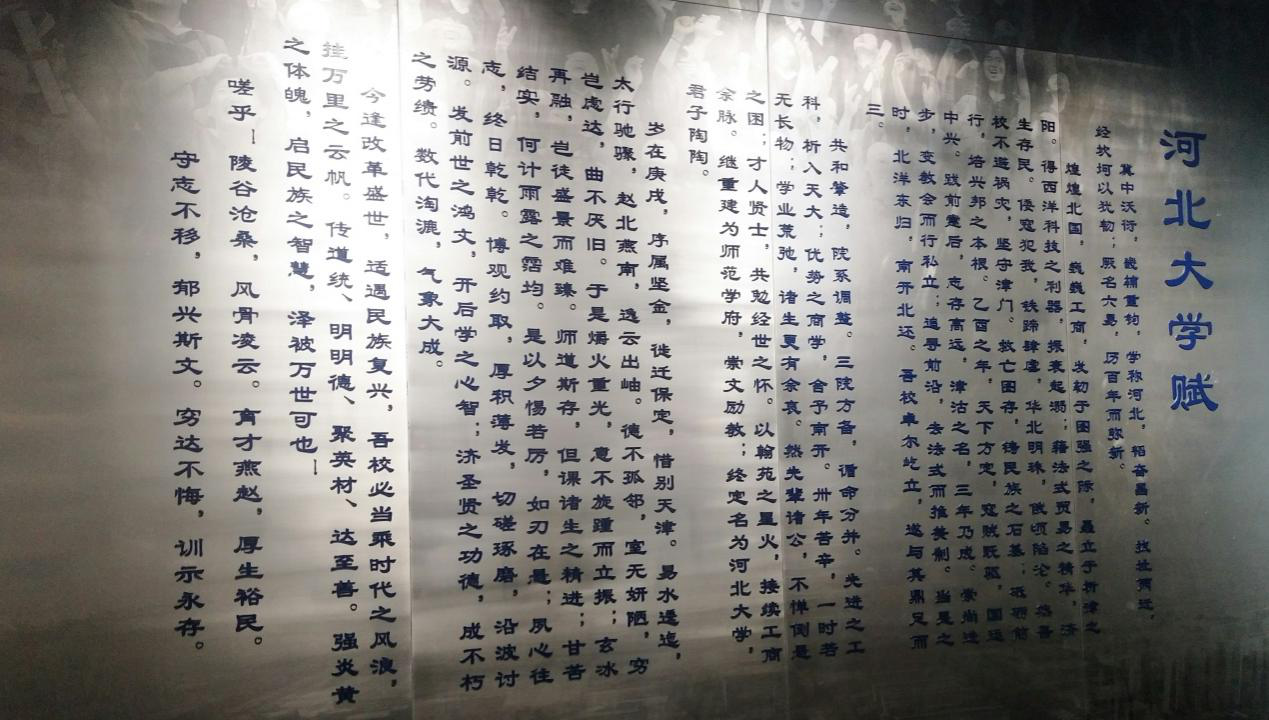 河北大学赋
冀中沃衍，畿辅重钧，学称河北，韬奋昌新。校址
经坎坷以犹韧；厥名六易，历百年而弥新。
煌煌北国，巍巍工商，发轫于图强之际，矗立于析津之
阳。得西洋科技之利器，振衰起溺；藉法式贸易之精华，济
生存民。倭寇犯我，铁蹄肆虐，华北明珠，俄顷陷沦。
校不避祸灾，坚守津门。救亡图存，铸民族之石基；砥砺前
行，培兴邦之本根。乙酉之年，天下方定，寇贼既驱，国运
中兴。跋前疐后，志存高远，津沽之名，三年乃成。崇尚进
步，变教会而行私立；追寻前沿，去法式而推美制。当是之
时，北洋东归，南开北还。吾校卓尔屹立，遂与其鼎足而
三。
共和肇造，院系调整。三院方备，循命分并。先进之工
科，析入天大；优势之商学，舍予南开。卅年苦辛，一时若
无长物；学业荒弛，诸生更有余哀。然先辈诸公，不惮倒悬
之困；才人贤士，共勉经世之怀。以翰苑之星火，接续工商
余脉。继重建为师范学府，崇文励教；终定名为河北大学，
君子陶陶。
岁在庚戌，序属坚金，徙迁保定，惜别天津。易水逶迤，
太行驰骤，赵北燕南，逸云出岫。德不孤邻，室无妍陋，穷
岂虑达，曲不厌旧。于是爝火重光，意不旋踵而立振；玄冰
再融，岂徒盛景而难臻。师道斯存，但课诸生之精进；甘苦
结实，何计雨露之霑均。是以夕惕若厉，如刃在悬；夙心往
志，终日乾乾。博观约取，厚积薄发，切磋琢磨，沿波讨
源。发前世之鸿文，开后学之心智；济圣贤之功德，成不朽
之劳绩。数代淘漉，气象大成。
今逢改革盛世，适遇民族复兴，吾校必当乘时代之风浪，
挂万里之云帆。传道统、明明德、聚英材、达至善。强炎黄
之体魄，启民族之智慧，泽被万世可也—
嗟乎—陵谷沧桑，风骨凌云。育才燕赵，厚生裕民。
守志不移，郁兴斯文。穷达不悔，训示永存。